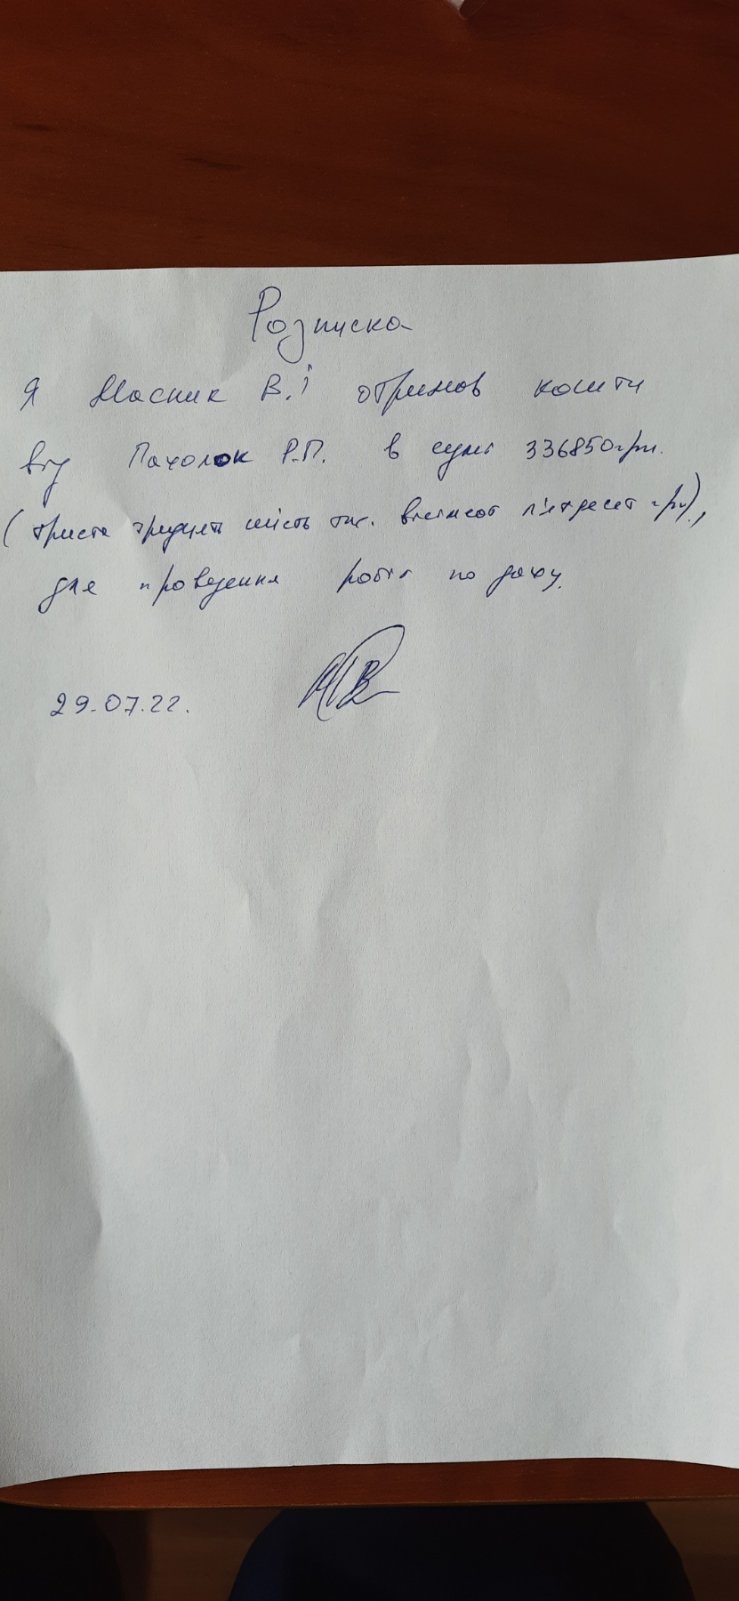 Розписка
Я Масник В.І отримав кошти
від Пачолок Р.П. в сумі 336850грн.
(триста тридцять шість тис. вісімсот п'ятдесят грн),
для проведення робіт по даху.
29.07.22.